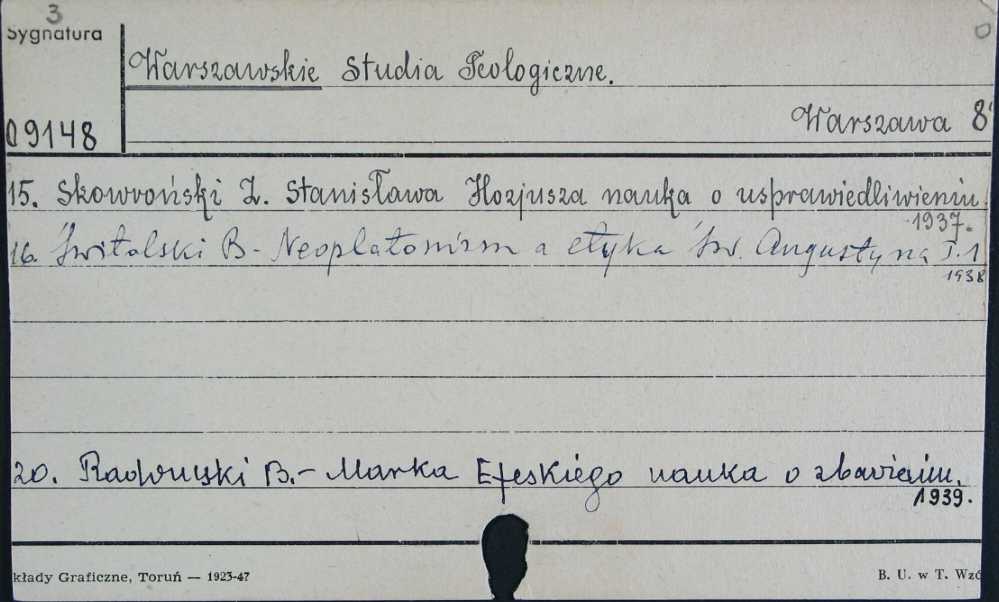 3
Sygnatura
Warszawskie Studia Teologiczne.
Warszawa 8°
09148
15. Skowroński Z. Stanisława Hozjusza nauka o usprawiedliwieniu.
1937.
16. Świtalski B - Neoplatonizm a etyka św. Augustyna T. 1
1938
20. Radomski B. - Marka Efeskiego nauka o zbawieniu.
1939.
kłady Graficzne, Toruń — 1923-47
B. U. w T. Wzó